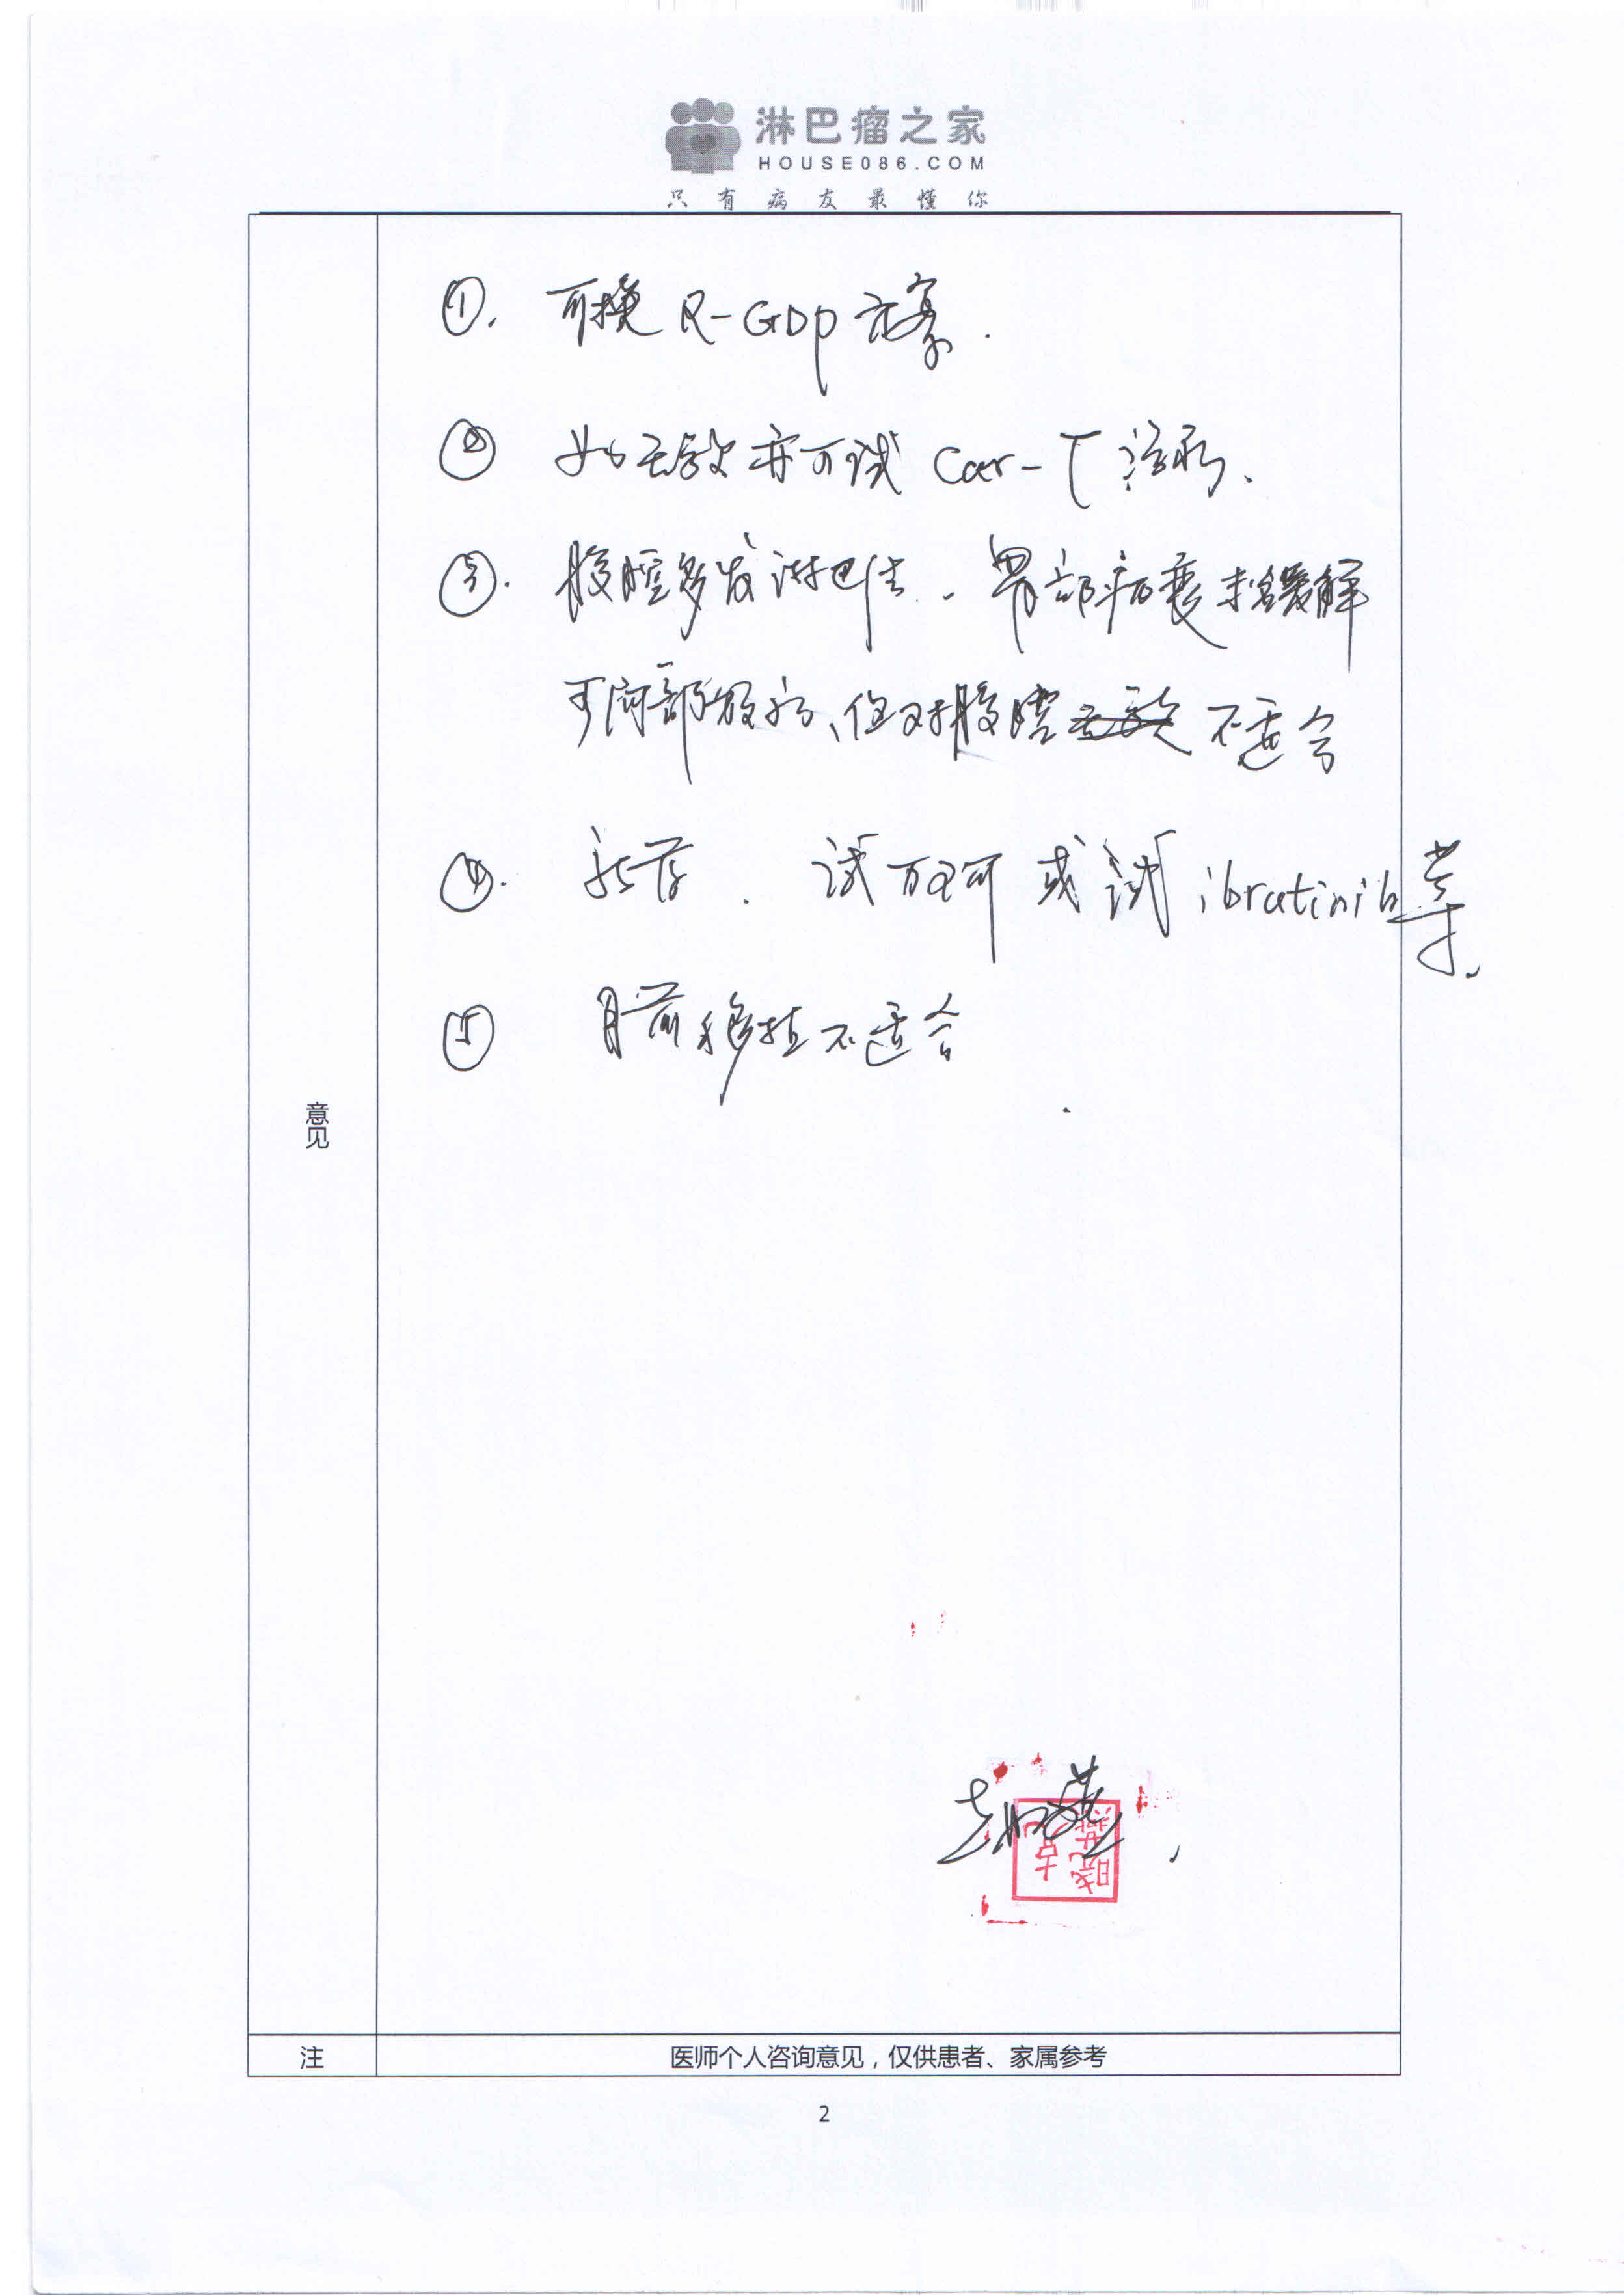 淋巴瘤之家
HOUSE086.COM
只有病友最懂你
①. 可换 R-GDP 方案.
② 如无效亦可试 Car-T 治疗.
③. 腹腔多发淋巴结. 胃部病变未缓解
可局部放疗、但对腹腔 不适合
④. 新药. 试万珂 或试 ibrutinib 等.
⑤ 目前移植不适合
意见
注
医师个人咨询意见，仅供患者、家属参考
2